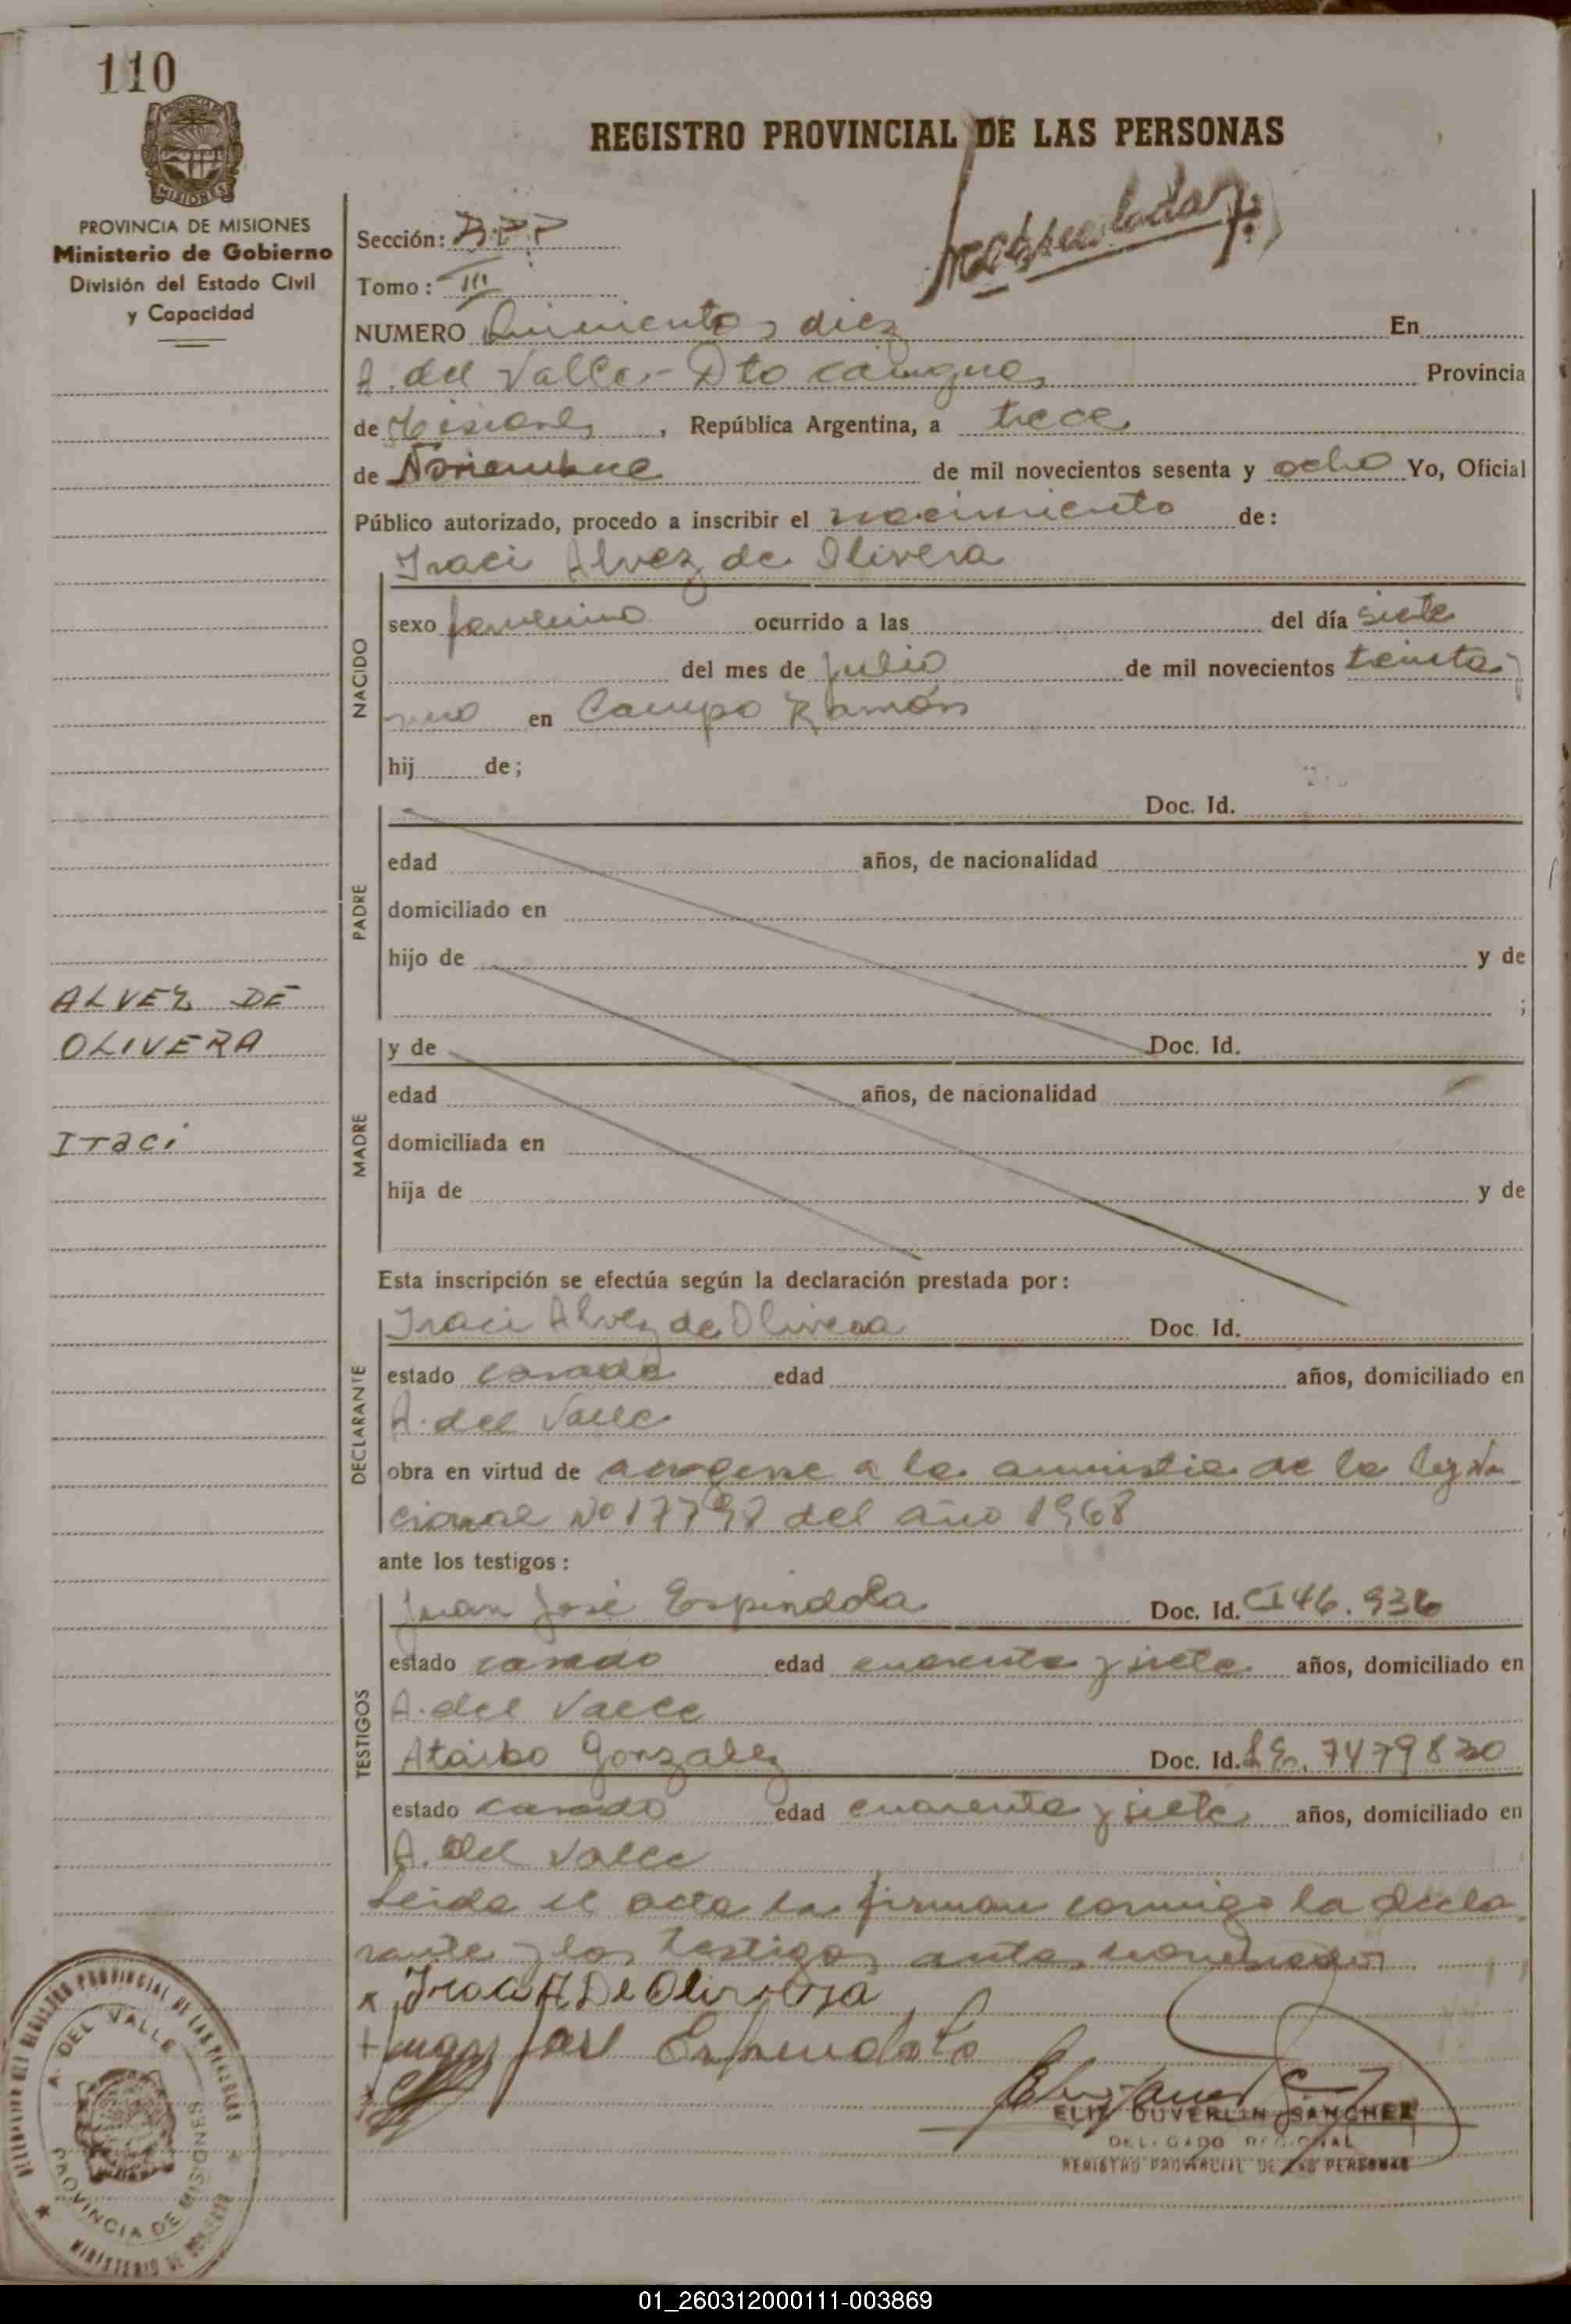 110
REGISTRO PROVINCIAL DE LAS PERSONAS
PROVINCIA DE MISIONES
Ministerio de Gobierno
División del Estado Civil
y Capacidad
Sección:
Tomo: III
NUMERO Quinientos diez En
A. del Valle - Dto cainguas Provincia
de Misiones, República Argentina, a trece
de Noviembre de mil novecientos sesenta y ocho Yo, Oficial
Público autorizado, procedo a inscribir el nacimiento de:
Iraci Alvez de Olivera
NACIDO
sexo femenino ocurrido a las del día siete
del mes de Julio de mil novecientos treinta y
uno en Campo Ramón
hij de;
PADRE
Doc. Id.
edad años, de nacionalidad
domiciliado en
hijo de y de
;
ALVEZ DE
OLIVERA
Iraci
MADRE
y de Doc. Id.
edad años, de nacionalidad
domiciliada en
hija de y de
Esta inscripción se efectúa según la declaración prestada por:
DECLARANTE
Iraci Alvez de Olivera Doc. Id.
estado casada edad años, domiciliado en
A. del Valle
obra en virtud de acogerse a la amnistia de la ley Na
cional No 17797 del año 1968
ante los testigos:
TESTIGOS
Juan José Espindola Doc. Id. CI 46.936
estado casado edad cuarenta y siete años, domiciliado en
A. del Valle
Ataibo Gonzalez Doc. Id. L.E. 7479820
estado casado edad cuarenta y siete años, domiciliado en
A. del Valle
Leida el acta la firman conmigo la decla
rante y los testigos antes nombrados
x Iraci A De Oliveira
+ Juan José Espindola
ELIX DUVERLIN SANCHEZ
DELEGADO REGIONAL
REGISTRO PROVINCIAL DE LAS PERSONAS
REGISTRO PROVINCIAL DE LAS PERSONAS
A. DEL VALLE
PROVINCIA DE MISIONES
MINISTERIO DE GOBIERNO
01_260312000111-003869